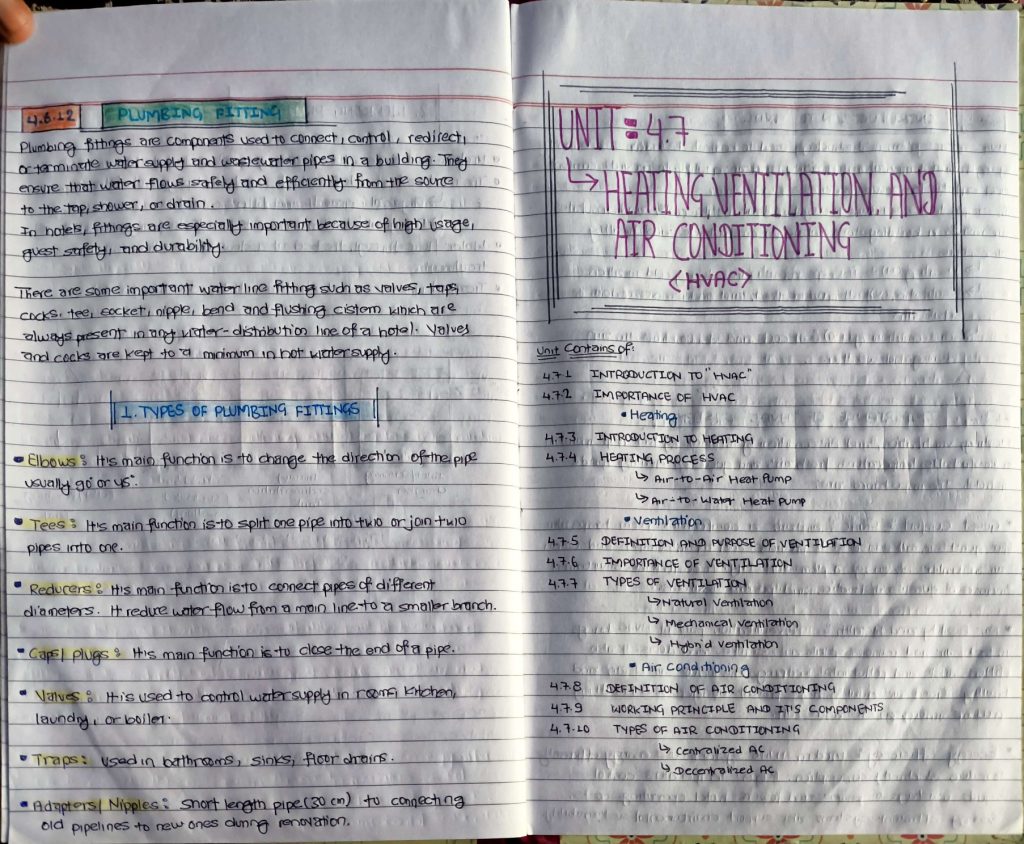 4.6.12 PLUMBING FITTING
Plumbing fittings are components used to connect, control, redirect,
or terminate water supply and wastewater pipes in a building. They
ensure that water flows safely and efficiently from the source
to the tap, shower, or drain.
In hotels, fittings are especially important because of high usage,
guest safety, and durability.
There are some important water line fitting such as valves, taps,
cocks, tee, socket, nipple, bend and flushing cistern which are
always present in any water-distribution line of a hotel. Valves
and cocks are kept to a minimum in hot water supply.
1. TYPES OF PLUMBING FITTINGS
• Elbows: It's main function is to change the direction of the pipe
usually 90° or 45°.
• Tees: It's main function is to split one pipe into two or join two
pipes into one.
• Reducers: It's main function is to connect pipes of different
diameters. It reduce water flow from a main line to a smaller branch.
• Caps/ Plugs: It's main function is to close the end of a pipe.
• Valves: It is used to control water supply in room, kitchen,
laundry, or boiler.
• Traps: used in bathrooms, sinks, floor drains.
• Adapters/ Nipples: Short length pipe (30 cm) to connecting
old pipelines to new ones during renovation.
UNIT = 4.7
↳ HEATING, VENTILATION, AND
AIR CONDITIONING
<HVAC>
Unit Contains of:
4.7.1 INTRODUCTION TO "HVAC"
4.7.2 IMPORTANCE OF HVAC
• Heating
4.7.3 INTRODUCTION TO HEATING
4.7.4 HEATING PROCESS
↳ Air-to-Air Heat Pump
↳ Air-to-Water Heat Pump
• Ventilation
4.7.5 DEFINITION AND PURPOSE OF VENTILATION
4.7.6 IMPORTANCE OF VENTILATION
4.7.7 TYPES OF VENTILATION
↳ Natural Ventilation
↳ Mechanical Ventilation
↳ Hybrid Ventilation
• Air Conditioning
4.7.8 DEFINITION OF AIR CONDITIONING
4.7.9 WORKING PRINCIPLE AND IT'S COMPONENTS
4.7.10 TYPES OF AIR CONDITIONING
↳ Centralized AC
↳ Decentralized AC